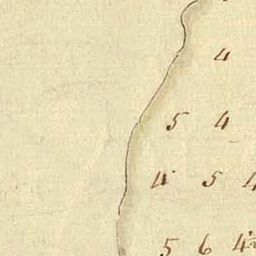 4
5 4
4 5 4
5 6 4